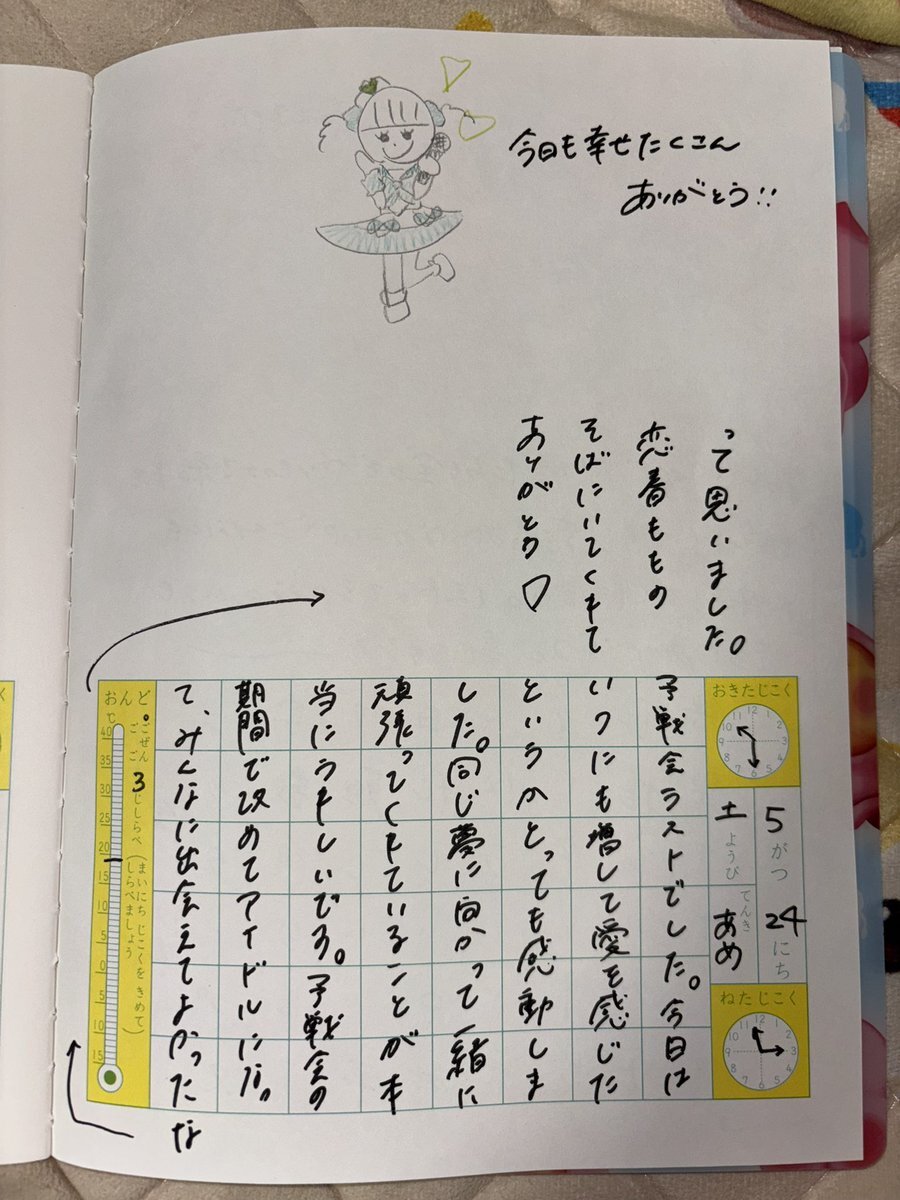 今日も幸せたくさん
ありがとう!!
おきたじこく
5がつ24にち
土ようび
てんき
あめ
ねたじこく
予戦会ラストでした。今日は
いつにも増して愛を感じた
というかとっても感動しま
した。同じ夢に向かって一緒に
頑張ってくれていることが本
当にうれしいです。予戦会の
期間で改めてアイドルになっ
て、みんなに出会えてよかったな
って思いました。
ももの
そばにいてくれて
ありがとう♡
おんど
℃
ごぜん
ごご
3じしらべ
(まいにち じこくを きめて
しらべましょう)
40
35
30
25
20
15
10
5
0
5
10
15